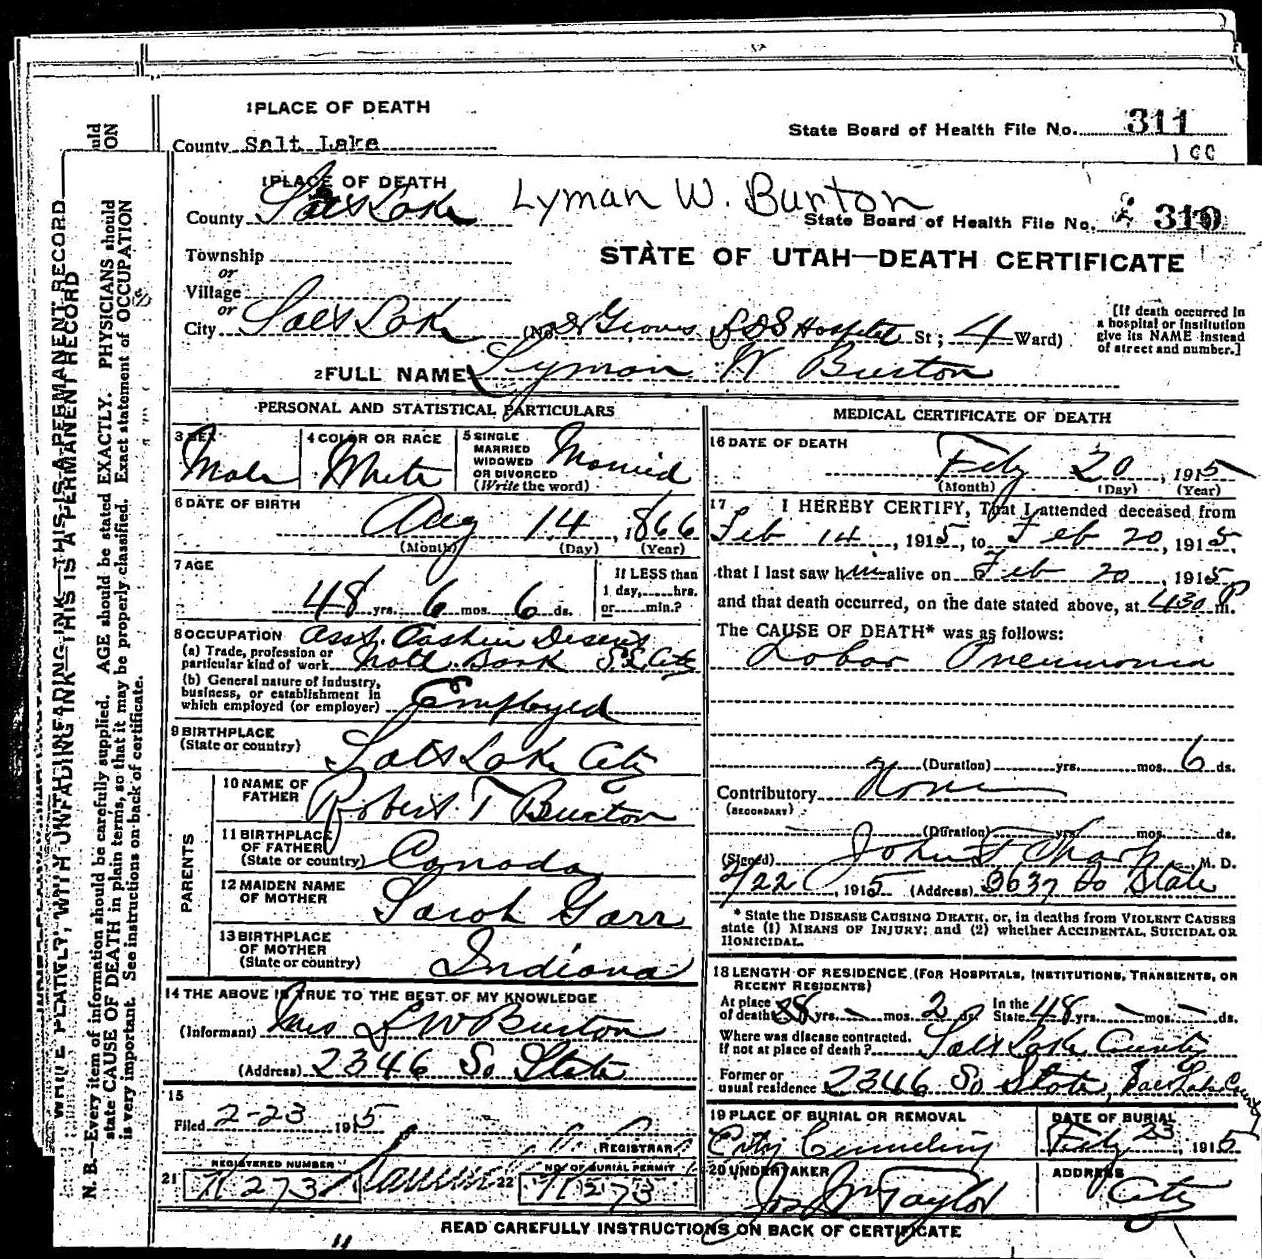 1 PLACE OF DEATH
County Salt Lake
State Board of Health File No. 311
1 PLACE OF DEATH
County Salt Lake
Lyman W. Burton
State Board of Health File No. 310
STATE OF UTAH—DEATH CERTIFICATE
Township
or
Village
or
City Salt Lake (No. Dr Groves LDS Hospital St; 4 Ward)
[If death occurred in
a hospital or institution
give its NAME instead
of street and number.]
2 FULL NAME Lyman W Burton
PERSONAL AND STATISTICAL PARTICULARS
3 SEX
Male
4 COLOR OR RACE
White
5 SINGLE
MARRIED
WIDOWED
OR DIVORCED
(Write the word)
Married
6 DATE OF BIRTH
Aug 14, 1866
(Month) (Day) (Year)
7 AGE
48 yrs. 6 mos. 6 ds.
If LESS than
1 day, hrs.
or min.?
8 OCCUPATION
(a) Trade, profession or
particular kind of work
Asst. Cashier Deseret
Natl. Bank S L City
(b) General nature of industry,
business, or establishment in
which employed (or employer) Employed
9 BIRTHPLACE
(State or country) Salt Lake City
PARENTS
10 NAME OF
FATHER Robert T Burton
11 BIRTHPLACE
OF FATHER
(State or country) Canada
12 MAIDEN NAME
OF MOTHER Sarah Garr
13 BIRTHPLACE
OF MOTHER
(State or country) Indiana
14 THE ABOVE IS TRUE TO THE BEST OF MY KNOWLEDGE
(Informant) Mrs L W Burton
(Address) 2346 So State
15
Filed 2-23 1915
REGISTRAR
21 REGISTERED NUMBER
H273
22 NO. OF BURIAL PERMIT
H273
MEDICAL CERTIFICATE OF DEATH
16 DATE OF DEATH
Feby 20, 1915
(Month) (Day) (Year)
17 I HEREBY CERTIFY, That I attended deceased from
Feb 14, 1915, to Feb 20, 1915
that I last saw him alive on Feb 20, 1915
and that death occurred, on the date stated above, at 430 P m.
The CAUSE OF DEATH* was as follows:
Lobar Pneumonia
(Duration) yrs. mos. 6 ds.
Contributory None
(SECONDARY)
(Duration) yrs. mos. ds.
(Signed) John F Sharp, M. D.
2/22, 1915 (Address) 3637 So State
* State the DISEASE CAUSING DEATH, or, in deaths from VIOLENT CAUSES
state (1) MEANS OF INJURY; and (2) whether ACCIDENTAL, SUICIDAL OR
HOMICIDAL.
18 LENGTH OF RESIDENCE (FOR HOSPITALS, INSTITUTIONS, TRANSIENTS, OR
RECENT RESIDENTS)
At place
of death yrs. mos. 2 ds. In the
State 48 yrs. mos. ds.
Where was disease contracted,
if not at place of death? Salt Lake County
Former or
usual residence 2346 So State, Salt Lake County
19 PLACE OF BURIAL OR REMOVAL
City Cemetery
DATE OF BURIAL
Feby 23, 1915
20 UNDERTAKER
Jos Wm Taylor
ADDRESS
City
READ CAREFULLY INSTRUCTIONS ON BACK OF CERTIFICATE
WRITE PLAINLY, WITH UNFADING INK—THIS IS A PERMANENT RECORD
N. B.—Every item of information should be carefully supplied. AGE should be stated EXACTLY. PHYSICIANS should
state CAUSE OF DEATH in plain terms, so that it may be properly classified. Exact statement of OCCUPATION
is very important. See instructions on back of certificate.